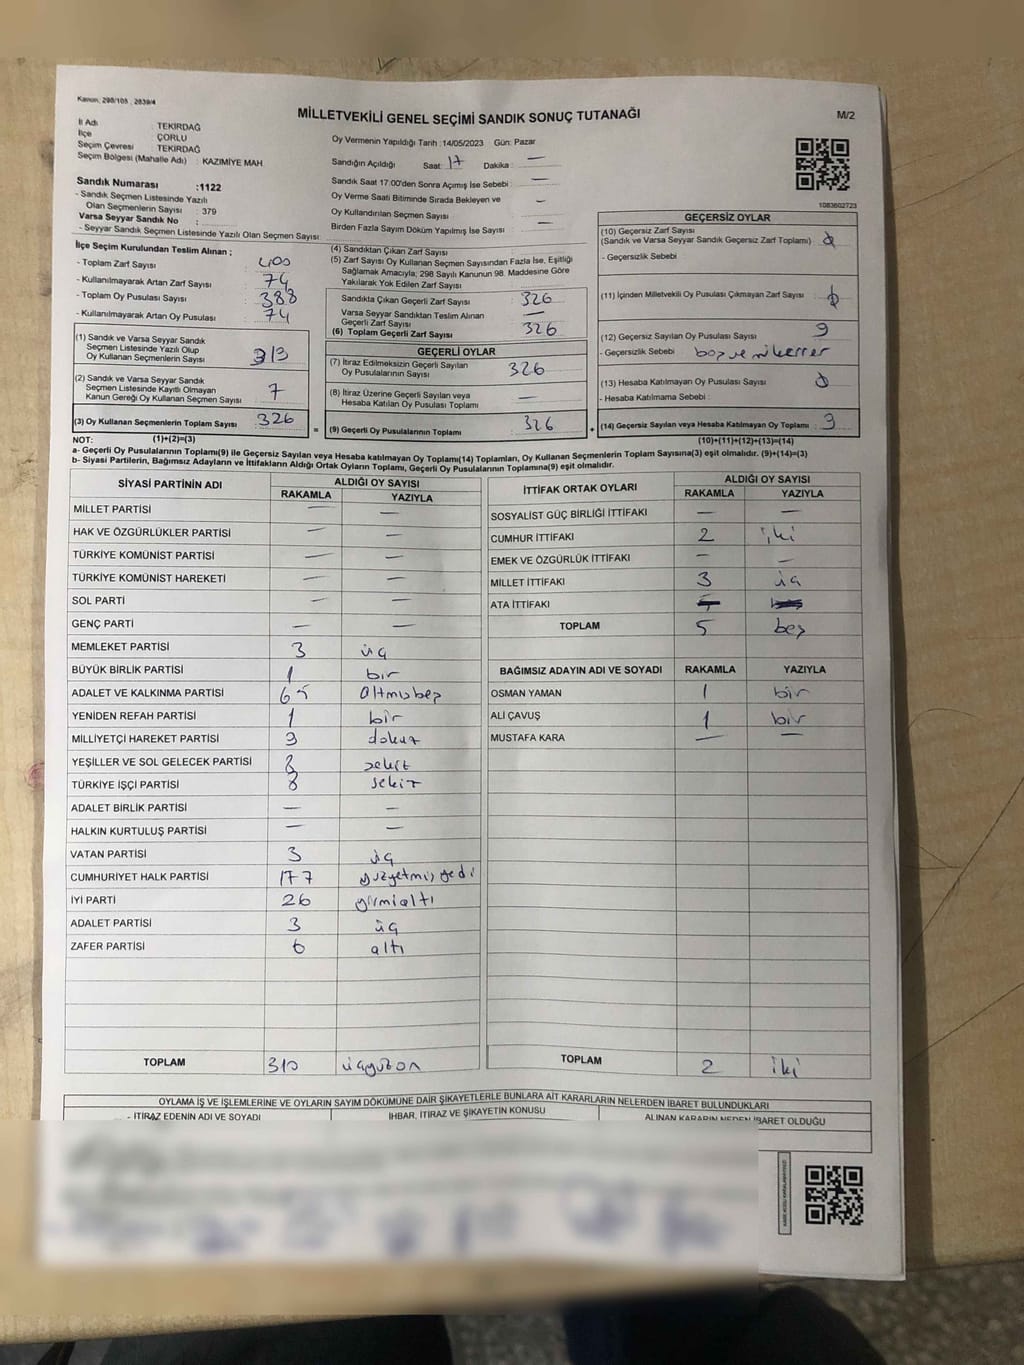 Kanun, 298/105 , 2839/4
MİLLETVEKİLİ GENEL SEÇİMİ SANDIK SONUÇ TUTANAĞI
M/2
İl Adı : TEKİRDAĞ
İlçe : ÇORLU
Seçim Çevresi : TEKİRDAĞ
Seçim Bölgesi (Mahalle Adı) : KAZIMİYE MAH
Sandık Numarası :1122
- Sandık Seçmen Listesinde Yazılı
Olan Seçmenlerin Sayısı : 379
Varsa Seyyar Sandık No :
- Seyyar Sandık Seçmen Listesinde Yazılı Olan Seçmen Sayısı
Oy Vermenin Yapıldığı Tarih :14/05/2023 Gün: Pazar
Sandığın Açıldığı Saat : 17 Dakika : —
Sandık Saat 17:00'den Sonra Açımış İse Sebebi : —
Oy Verme Saati Bitiminde Sırada Bekleyen ve
Oy Kullandırılan Seçmen Sayısı —
Birden Fazla Sayım Döküm Yapılmış İse Sayısı —
1083602723
İlçe Seçim Kurulundan Teslim Alınan ;
- Toplam Zarf Sayısı : 400
- Kullanılmayarak Artan Zarf Sayısı : 74
- Toplam Oy Pusulası Sayısı : 388
- Kullanılmayarak Artan Oy Pusulası : 74
(1) Sandık ve Varsa Seyyar Sandık
Seçmen Listesinde Yazılı Olup
Oy Kullanan Seçmenlerin Sayısı : 313
(2) Sandık ve Varsa Seyyar Sandık
Seçmen Listesinde Kayıtlı Olmayan
Kanun Gereği Oy Kullanan Seçmen Sayısı : 7
(3) Oy Kullanan Seçmenlerin Toplam Sayısı : 326
(4) Sandıktan Çıkan Zarf Sayısı
(5) Zarf Sayısı Oy Kullanan Seçmen Sayısından Fazla İse, Eşitliği
Sağlamak Amacıyla; 298 Sayılı Kanunun 98. Maddesine Göre
Yakılarak Yok Edilen Zarf Sayısı
Sandıkta Çıkan Geçerli Zarf Sayısı : 326
Varsa Seyyar Sandıktan Teslim Alınan
Geçerli Zarf Sayısı : —
(6) Toplam Geçerli Zarf Sayısı 326
GEÇERLİ OYLAR
(7) İtiraz Edilmeksizin Geçerli Sayılan
Oy Pusulalarının Sayısı : 326
(8) İtiraz Üzerine Geçerli Sayılan veya
Hesaba Katılan Oy Pusulası Toplamı : —
= (9) Geçerli Oy Pusulalarının Toplamı : 326 +
GEÇERSİZ OYLAR
(10) Geçersiz Zarf Sayısı
(Sandık ve Varsa Seyyar Sandık Geçersiz Zarf Toplamı) :
- Geçersizlik Sebebi
(11) İçinden Milletvekili Oy Pusulası Çıkmayan Zarf Sayısı :
(12) Geçersiz Sayılan Oy Pusulası Sayısı : 9
- Geçersizlik Sebebi : boş ve mükerrer
(13) Hesaba Katılmayan Oy Pusulası Sayısı :
- Hesaba Katılmama Sebebi :
(14) Geçersiz Sayılan veya Hesaba Katılmayan Oy Toplamı : 9
NOT: (1)+(2)=(3) (10)+(11)+(12)+(13)=(14)
a- Geçerli Oy Pusulalarının Toplamı(9) ile Geçersiz Sayılan veya Hesaba katılmayan Oy Toplamı(14) Toplamları, Oy Kullanan Seçmenlerin Toplam Sayısına(3) eşit olmalıdır. (9)+(14)=(3)
b- Siyasi Partilerin, Bağımsız Adayların ve İttifakların Aldığı Ortak Oyların Toplamı, Geçerli Oy Pusulalarının Toplamına(9) eşit olmalıdır.
SİYASİ PARTİNİN ADI ALDIĞI OY SAYISI
RAKAMLA YAZIYLA
MİLLET PARTİSİ — —
HAK VE ÖZGÜRLÜKLER PARTİSİ — —
TÜRKİYE KOMÜNİST PARTİSİ — —
TÜRKİYE KOMÜNİST HAREKETİ — —
SOL PARTİ — —
GENÇ PARTİ — —
MEMLEKET PARTİSİ 3 üç
BÜYÜK BİRLİK PARTİSİ 1 bir
ADALET VE KALKINMA PARTİSİ 65 altmışbeş
YENİDEN REFAH PARTİSİ 1 bir
MİLLİYETÇİ HAREKET PARTİSİ 9 dokuz
YEŞİLLER VE SOL GELECEK PARTİSİ 8 sekiz
TÜRKİYE İŞÇİ PARTİSİ 8 sekiz
ADALET BİRLİK PARTİSİ — —
HALKIN KURTULUŞ PARTİSİ — —
VATAN PARTİSİ 3 üç
CUMHURİYET HALK PARTİSİ 177 yüzyetmişyedi
İYİ PARTİ 26 yirmialtı
ADALET PARTİSİ 3 üç
ZAFER PARTİSİ 6 altı
TOPLAM 310 üçyüzon
İTTİFAK ORTAK OYLARI ALDIĞI OY SAYISI
RAKAMLA YAZIYLA
SOSYALİST GÜÇ BİRLİĞİ İTTİFAKI — —
CUMHUR İTTİFAKI 2 iki
EMEK VE ÖZGÜRLÜK İTTİFAKI — —
MİLLET İTTİFAKI 3 üç
ATA İTTİFAKI
TOPLAM 5 beş
BAĞIMSIZ ADAYIN ADI VE SOYADI RAKAMLA YAZIYLA
OSMAN YAMAN 1 bir
ALİ ÇAVUŞ 1 bir
MUSTAFA KARA — —
TOPLAM 2 iki
OYLAMA İŞ VE İŞLEMLERİNE VE OYLARIN SAYIM DÖKÜMÜNE DAİR ŞİKAYETLERLE BUNLARA AİT KARARLARIN NELERDEN İBARET BULUNDUKLARI
- İTİRAZ EDENİN ADI VE SOYADI İHBAR, İTİRAZ VE ŞİKAYETİN KONUSU ALINAN KARARIN NEDEN İBARET OLDUĞU